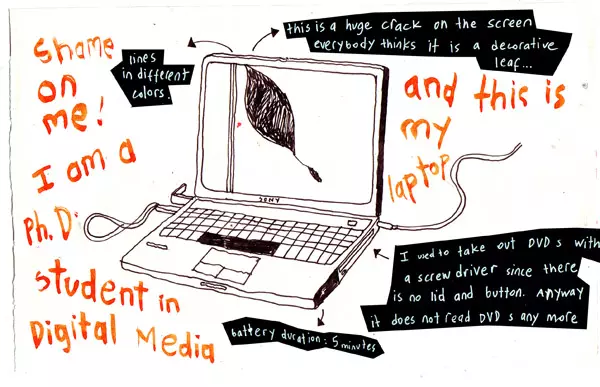 Shame
on
me!
I am a
Ph.D.
student in
Digital Media
lines
in different
colors.
this is a huge crack on the screen
everybody thinks it is a decorative
leaf...
and this is
my
laptop
SONY
I used to take out DVD s with
a screw driver since there
is no lid and button. Anyway
it does not read DVD s any more
battery duration: 5 minutes